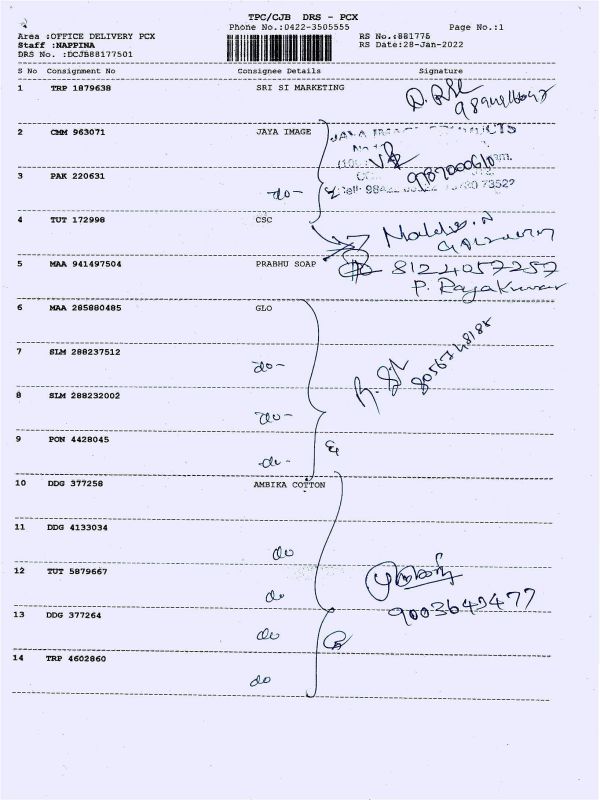 TPC/CJB DRS - PCX
Phone No.:0422-3505555 Page No.:1
Area :OFFICE DELIVERY PCX RS No.:881775
Staff :NAPPINA RS Date:28-Jan-2022
DRS No. :DCJB88177501
S No Consignment No Consignee Details Signature
1 TRP 1879638 SRI SI MARKETING
2 CMM 963071 JAYA IMAGE
3 PAK 220631
-do-
4 TUT 172998 CSC
5 MAA 941497504 PRABHU SOAP 8122057257
P. Rajakumar
6 MAA 285880485 GLO
7 SLM 288237512
do-
8 SLM 288232002
do-
9 PON 4428045
-do-
10 DDG 377258 AMBIKA COTTON
11 DDG 4133034
do
12 TUT 5879667
do
13 DDG 377264
9003643477
do
14 TRP 4602860
do